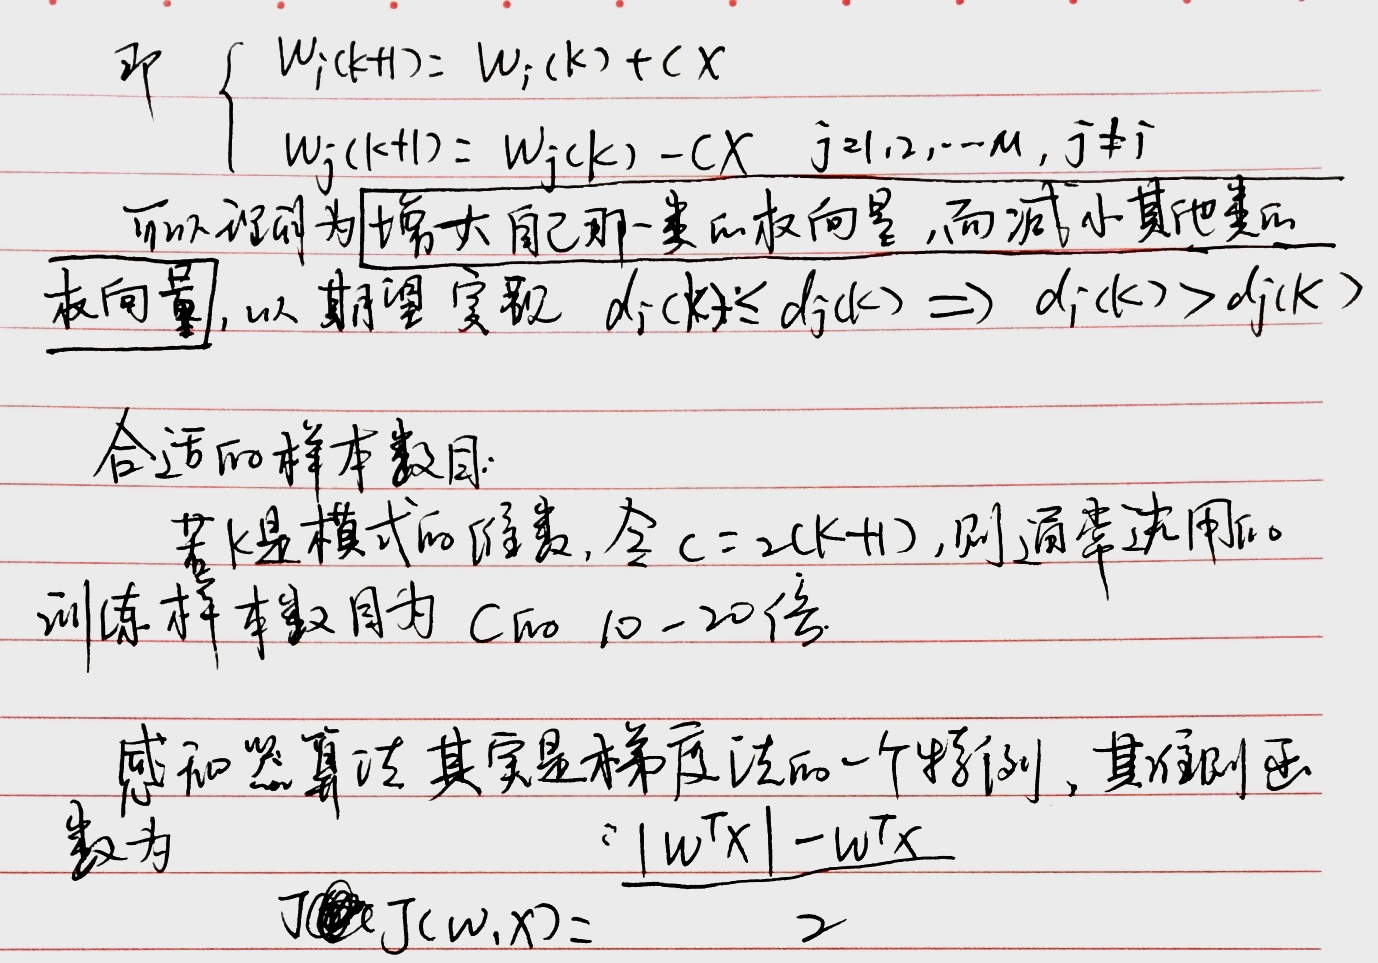 即 { Wi(k+1) = Wi(k) + CX
Wj(k+1) = Wj(k) - CX j=1,2,...M, j≠i
可以理解为增大自己那一类的权向量,而减小其他类的
权向量,以期望实现 di(k) ≤ dj(k) => di(k) > dj(k)
合适的样本数目:
若k是模式的维数,令 C = 2(k+1),则通常选用的
训练样本数目为 C的 10-20倍.
感知器算法其实是梯度法的一个特例,其准则函
数为 |WᵀX| - WᵀX
J(W,X) =
2